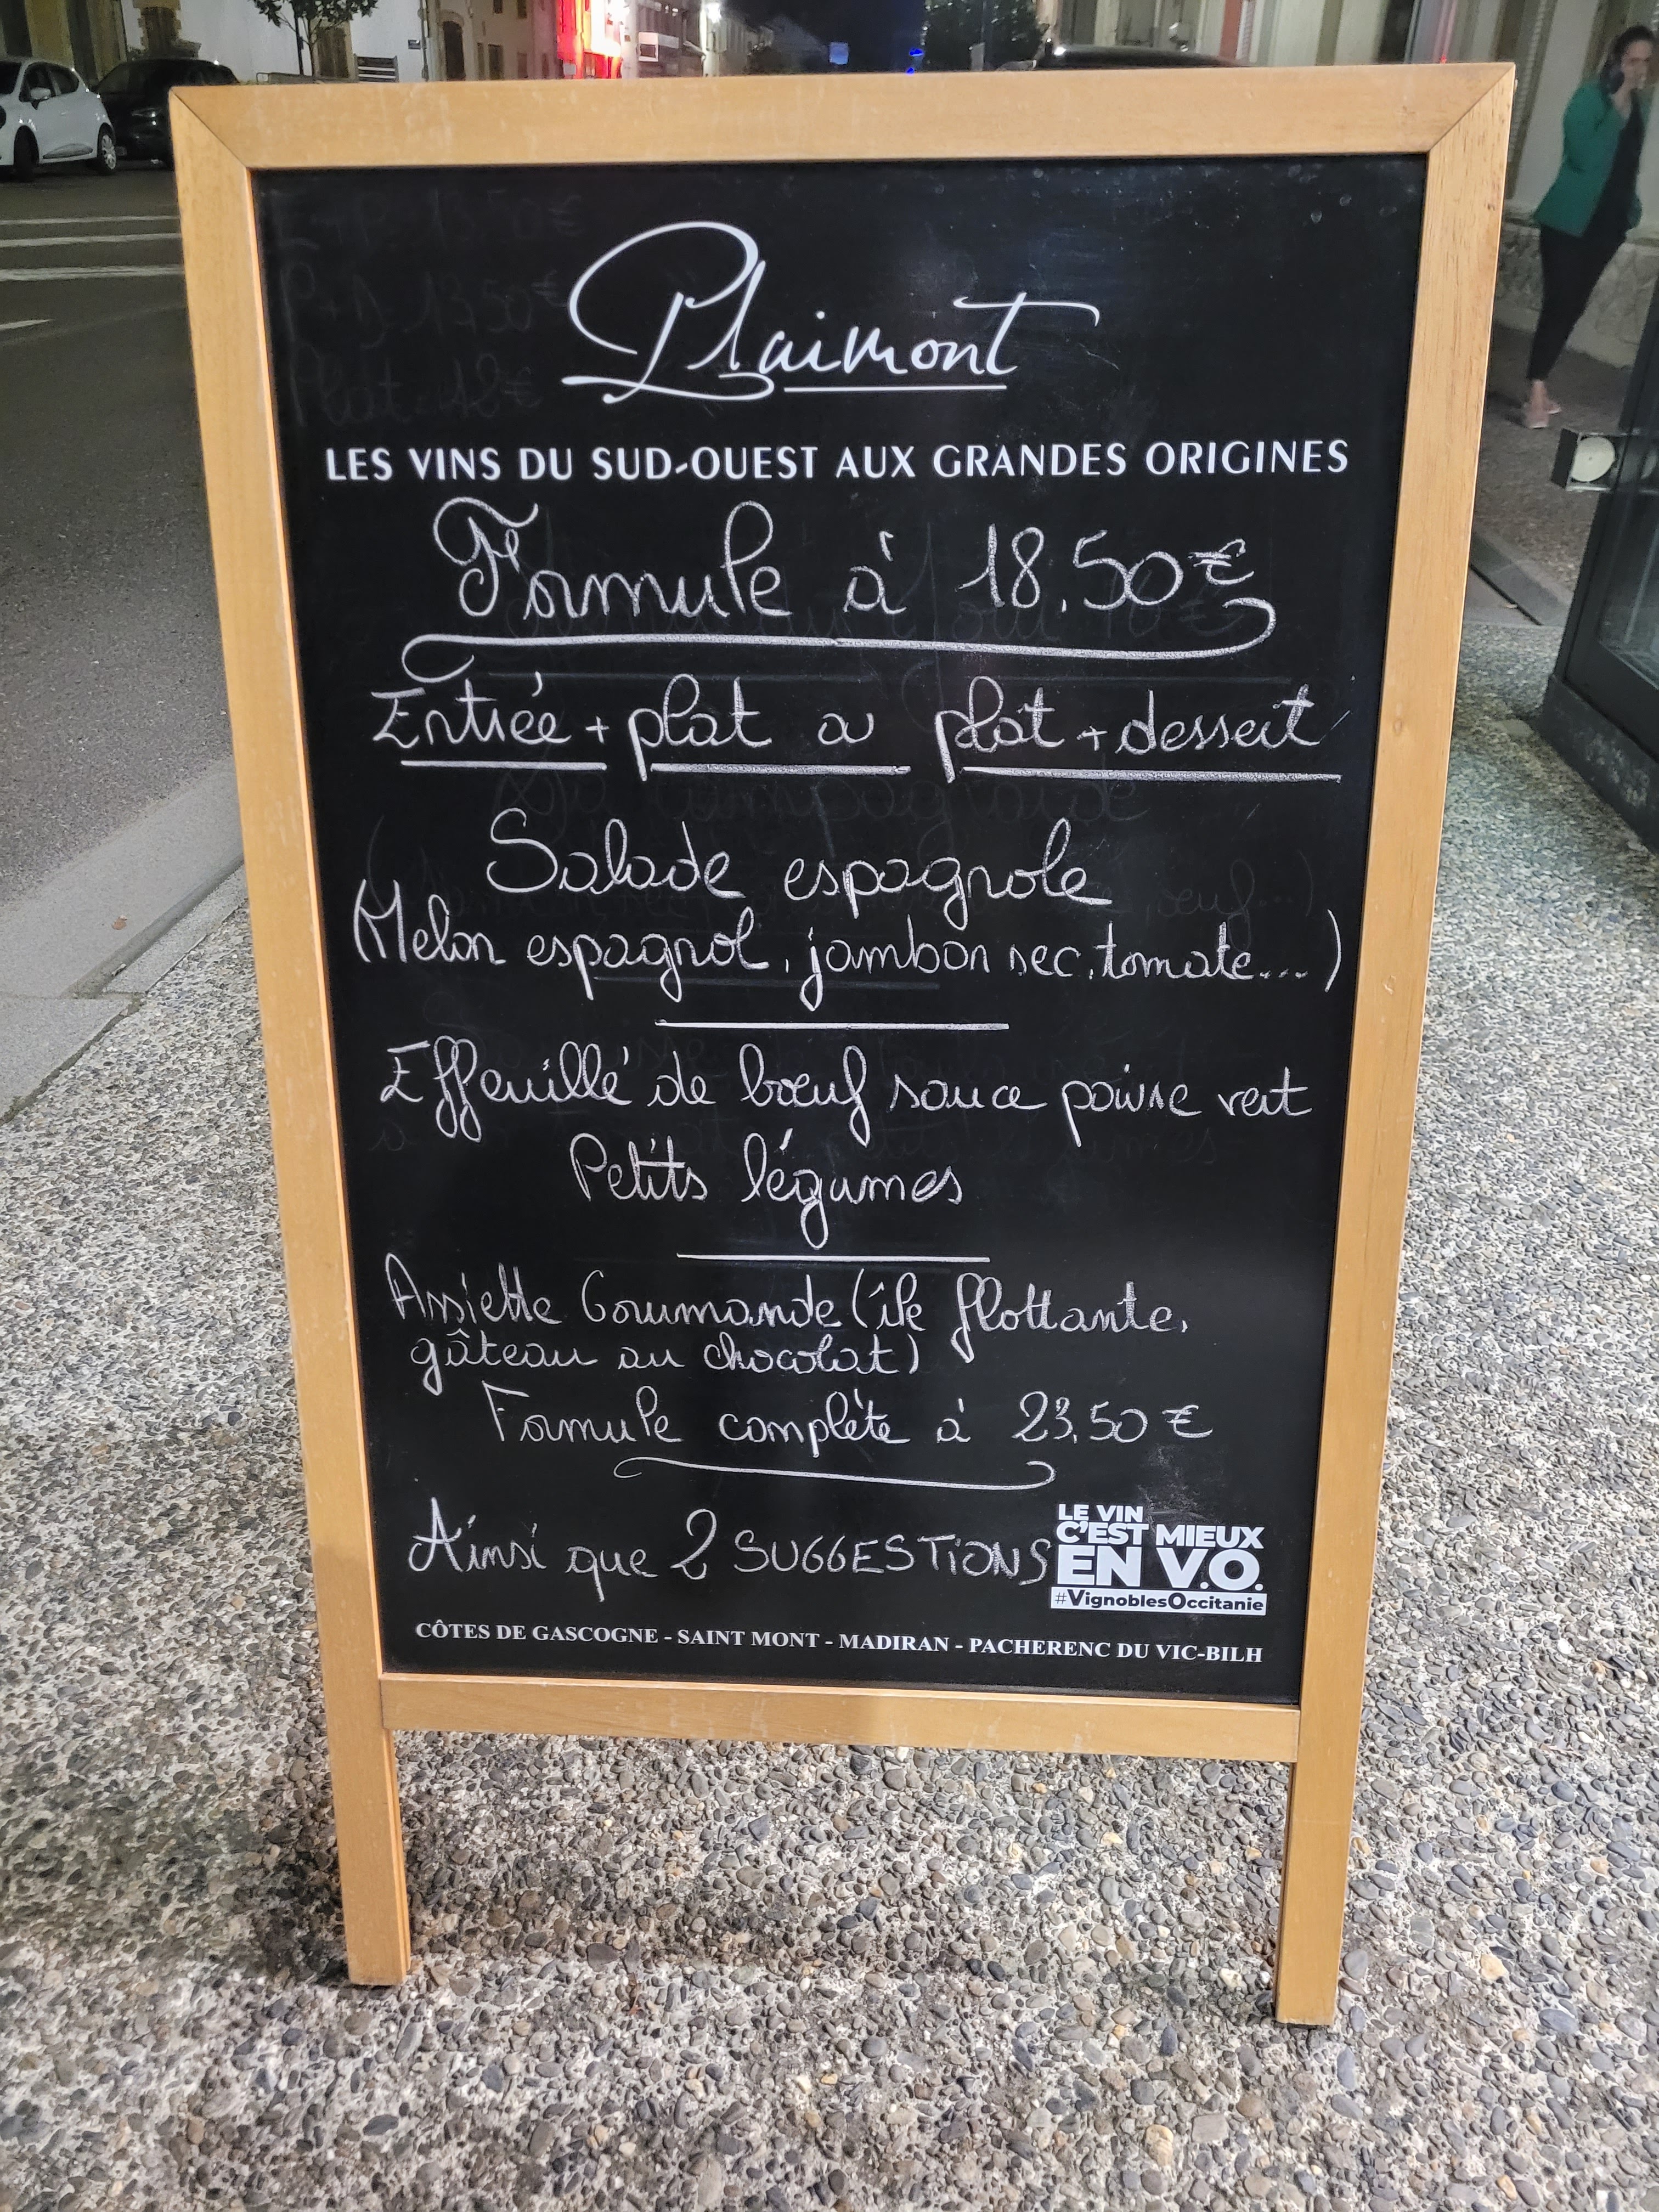 Plaimont
LES VINS DU SUD-OUEST AUX GRANDES ORIGINES
Formule à 18,50€
Entrée + plat ou plat + dessert
Salade espagnole
(Melon espagnol, jambon sec, tomate...)
Effeuillé de bœuf sauce poivre vert
Petits légumes
Assiette Gourmande (île flottante,
gâteau au chocolat)
Formule complète à 23,50 €
Ainsi que 2 SUGGESTIONS
LE VIN
C'EST MIEUX
EN V.O.
#VignoblesOccitanie
CÔTES DE GASCOGNE - SAINT MONT - MADIRAN - PACHERENC DU VIC-BILH